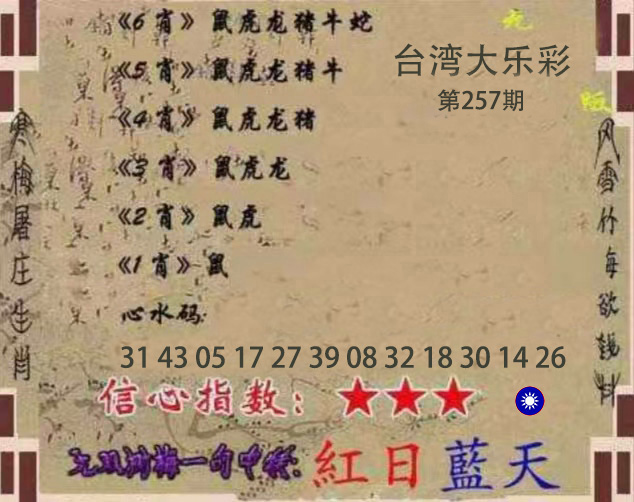 《6 肖》 鼠虎龙猪牛蛇
《5 肖》 鼠虎龙猪牛
《4 肖》 鼠虎龙猪
《3 肖》 鼠虎龙
《2 肖》 鼠虎
《1 肖》 鼠
台湾大乐彩
第257期
寒梅屠庄生肖
心水码:
31 43 05 17 27 39 08 32 18 30 14 26
信心指数: ★★★
一句中特: 紅日藍天